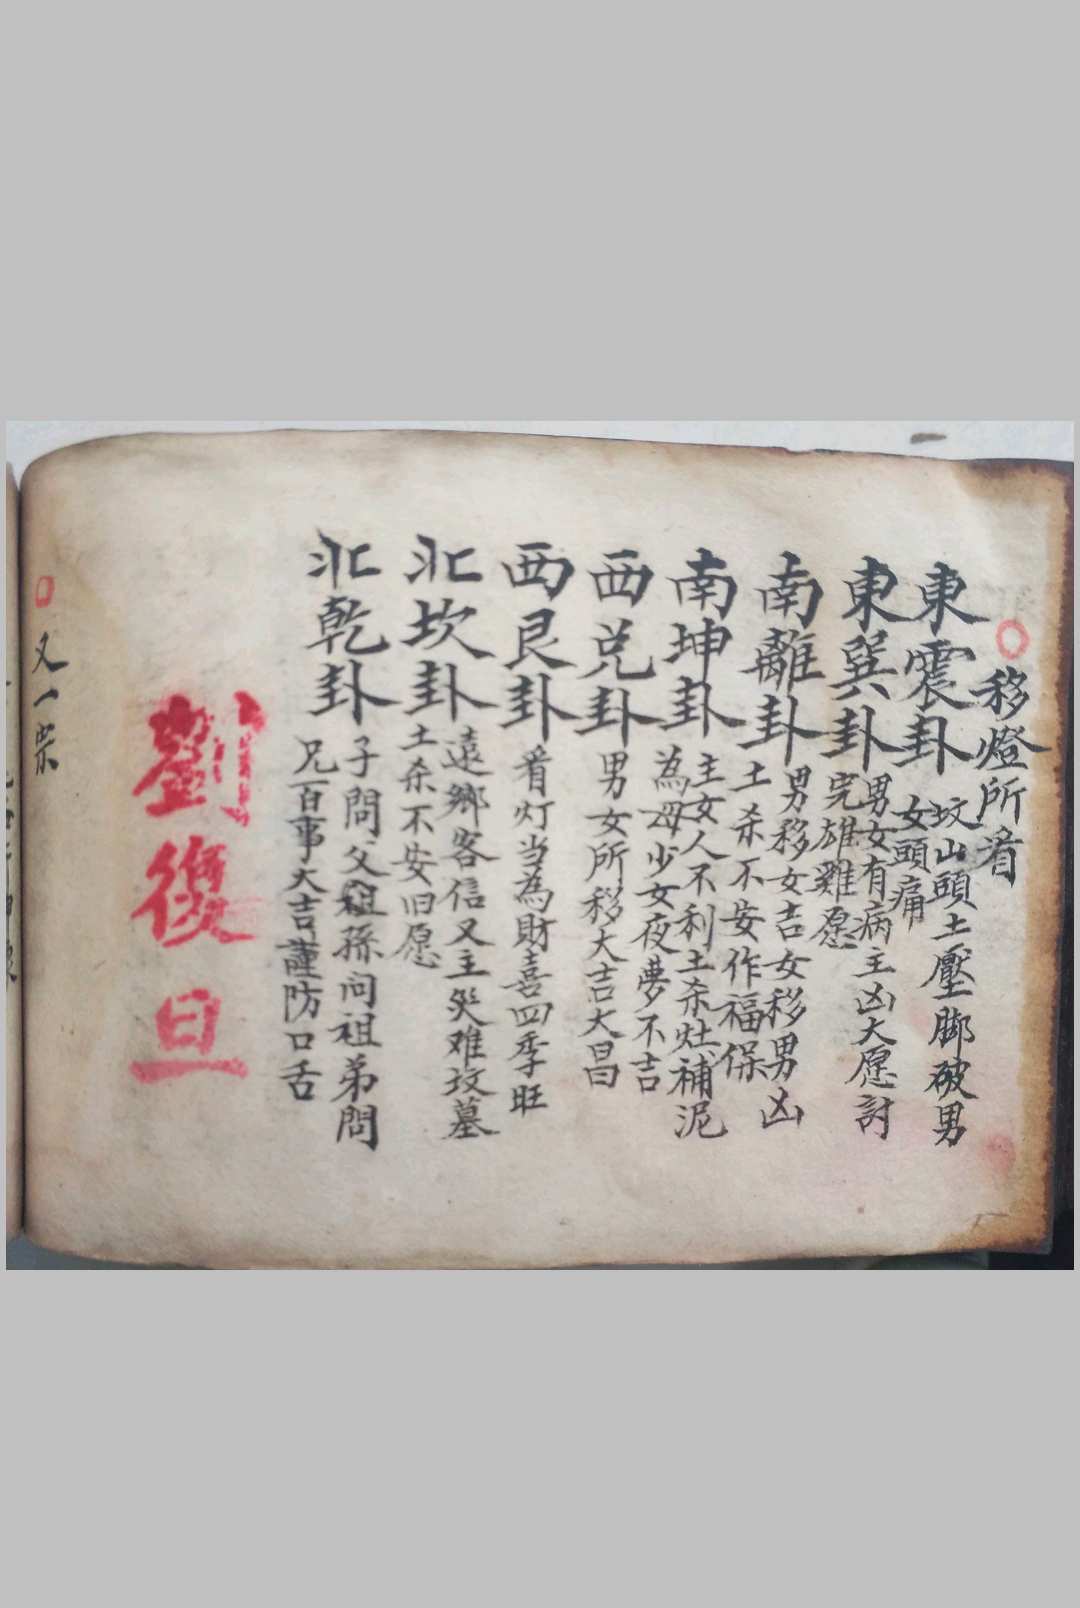 移燈所看
東震卦 坟山頭土壓脚破男
女頭痛
東巽卦 男女有病主凶大愿討
完雄雞愿
南離卦 男移女吉女移男凶
土杀不安作福保
南坤卦 主女人不利土杀灶補泥
為母少女夜夢不吉
西兑卦 男女所移大吉大昌
西艮卦 看灯当為財喜四季旺
北坎卦 遠鄉客信又主災难坟墓
土杀不安旧愿
北乾卦 子問父祖孫问祖弟問
兄百事大吉謹防口舌
劉復旦
又一宗